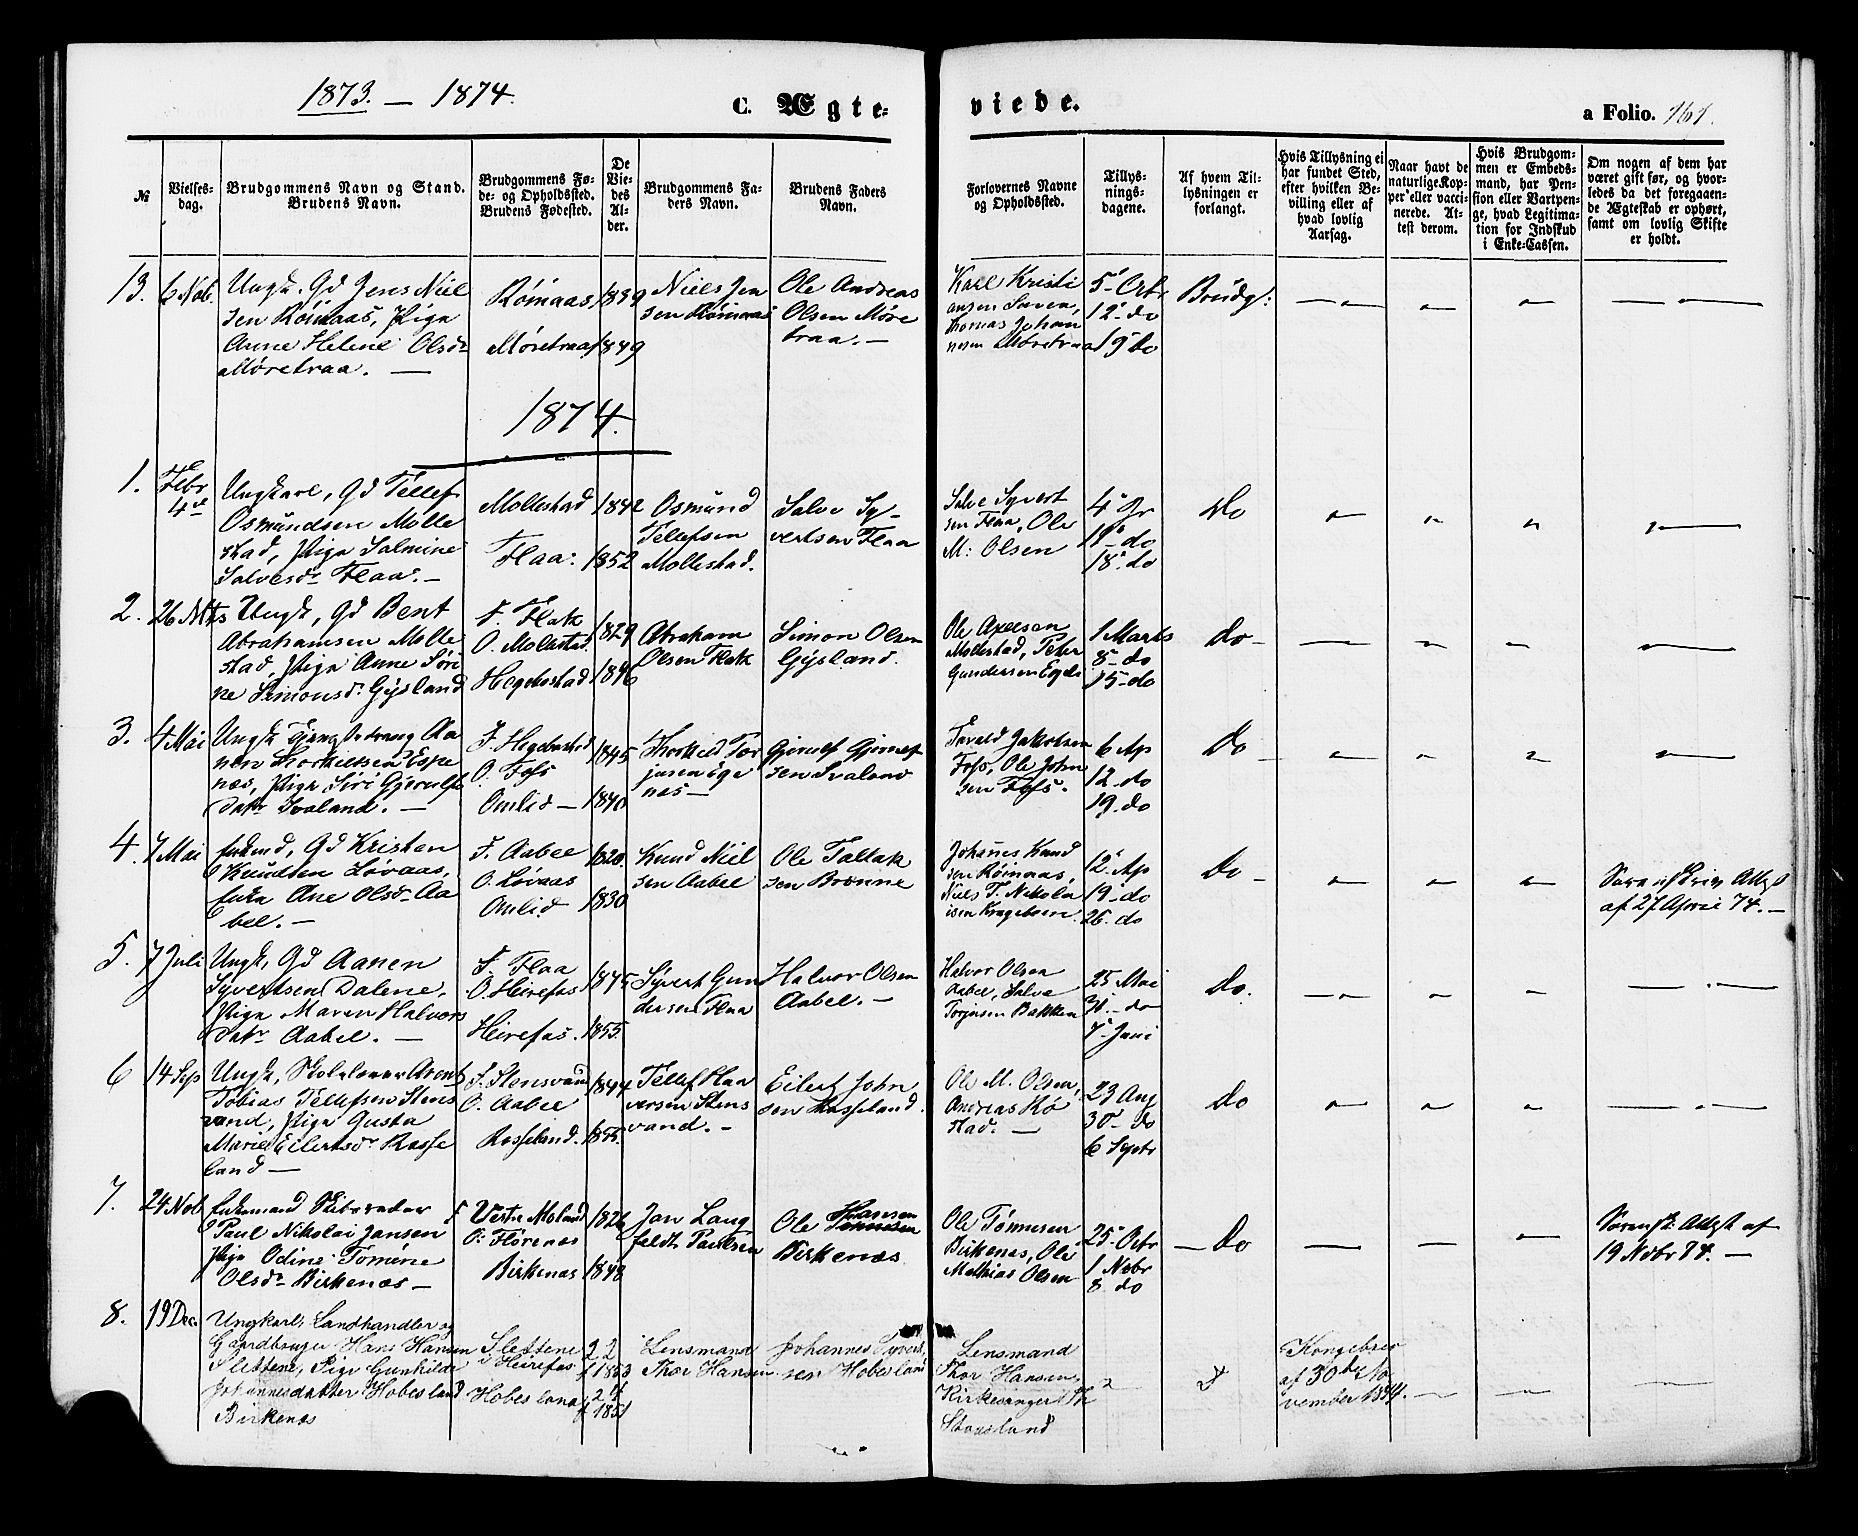 1873. — 1874.
C. Ægteviede.
a Folio. 161.
№
Vielsesdag.
Brudgommens Navn og Stand. Brudens Navn.
Brudgommens Føde- og Opholdssted. Brudens Fødested.
De Viedes Alder.
Brudgommens Faders Navn.
Brudens Faders Navn.
Forlovernes Navne og Opholdssted.
Tillysningsdagene.
Af hvem Tillysningen er forlangt.
Hvis Tillysning ei har fundet Sted, efter hvilken Bevilling eller af hvad lovlig Aarsag.
Naar havt de naturlige Kopper eller vaccinerede. Attest derom.
Hvis Brudgommen er Embedsmand, har Pension eller Vartpenge, hvad Legitimation for Indskud i Enke-Cassen.
Om nogen af dem har været gift før, og hvorledes da det foregaaende Ægteskab er ophørt, samt om lovlig Skifte er holdt.
13.
6 Nob.
Ungk. Gd Jens Niel
sen Rømaas, Piga
Anne Helene Olsdr
Møretraa. —
Rømaas, 1839
Møretraa 1849
Niels Jen
sen Rømaas
Ole Andreas
Olsen Møre
traa. —
Karl Kristi
ansen
Thomas Johan
nesen Møretraa
5 Octr
12 do
19 do
Brudg:
1874.
1.
Febr
4de
Ungkarl, Gd Tellef
Osmundsen Molle
stad, Piga Salmine
Salvesdr Flaa. —
Mollestad 1842
Flaa: 1852
Osmund
Tellefsen
Mollestad.
Salve Sy-
vertsen Flaa
Salve Syvert
sen Flaa, Ole
M: Olsen
4
11 do
18. do
Do
2.
26 Mts
Ungk, Gd Bent
Abrahamsen Molle
stad, Piga Anne Seri
ne Simonsd. Gysland
F. Flak
O. Mollestad. 1829
Hegebostad 1846
Abraham
Olsen Flak
Simon Olsen
Gysland.
Ole Axelsen
Mollestad, Peter
Gundersen
1 Marts
8 do
15 do
Do
3.
4 Mai
Ungk Tjenestedreng Aa
nen Thorkildsen Ege
nes, Piga Siri Gjerulfs
datr Svaland. —
F. Hegebostad 1845
O. Foss
Omlid — 1840
Thorkild Ter
jusen Ege
nes —
Gjerulf Gjerulf
sen Svaland
Tarald Jakobsen
Foss, Ole John
sen Foss.
6 Ap
12. do
19. do
Do
4.
7 Mai
Enkemd, Gd Kristen
Knudsen Løvaas,
Enka Ane Olsdr Aa
bel. —
F. Aabel 1820
O. Løvaas
Omlid 1830
Knud Niel
sen Aabel
Ole Taltak
sen Brønne
Johannes Knud
sen Rømaas,
Niels T. Nikola
isen
12 Ap
19. do
26. do
Do
Attest
af 27 April 74. —
5.
7 Juli
Ungk, Gd Aanen
Syvertsen Dalene,
Piga Maren Halvors
datr Aabel. —
F. Flaa 1845
O. Heirefos
Heirefos. 1855
Syvert Gun
dersen Flaa
Halvor Olsen
Aabel. —
Halvor Olsen
Aabel, Salve
Torjusen Bakken
25 Mai
31 — do
7 Juni
Do.
6
14 Sep
Ungk, Skolelærer Arent
Tobias Tellefsen Stens
vand, Piga Gusta
Marie Eilertsdr Rosse
land —
F. Stensvand 1844
O. Aabel
Rosseland. 1855
Tellef Haa
versen Stens
vand. —
Eilert John
sen Rosseland.
Ole M. Olsen,
Andreas Rø
stad. —
23 Aug
30 do
6 Septr
Do
7.
24 Nob
Enkemand Skibsreder
Paul Nikolai Jansen
Piga Odine Tomine
Olsdr Birkenæs —
F Vestre Moland 1826
O: Florenæs
Birkenæs 1848
Jan Lang
feldt Paulsen
Ole Hansen
Birkenæs
Ole Tønnesen
Birkenæs, Ole
Mathias Olsen
25 Octbr
1 Nobr
8 do
— Do
Attest af
19 Nobr 74. —
8.
19 Dec.
Ungkarl, Landhandler og
Gaardbruger Hans Hansen
Slettene, Pige Gunhilde
Johannesdatter Hobesland
Birkenæs
Slettene
i Heirefos 2/2 1853
Hobesland 2/4 1851
Lensmand
Thor Hansen
Johannes Syvert
sen Hobesland
Lensmand
Thor Hansen,
Kirkesanger Th
Staasland
Kongebrev
af 30te No
vember 1874.